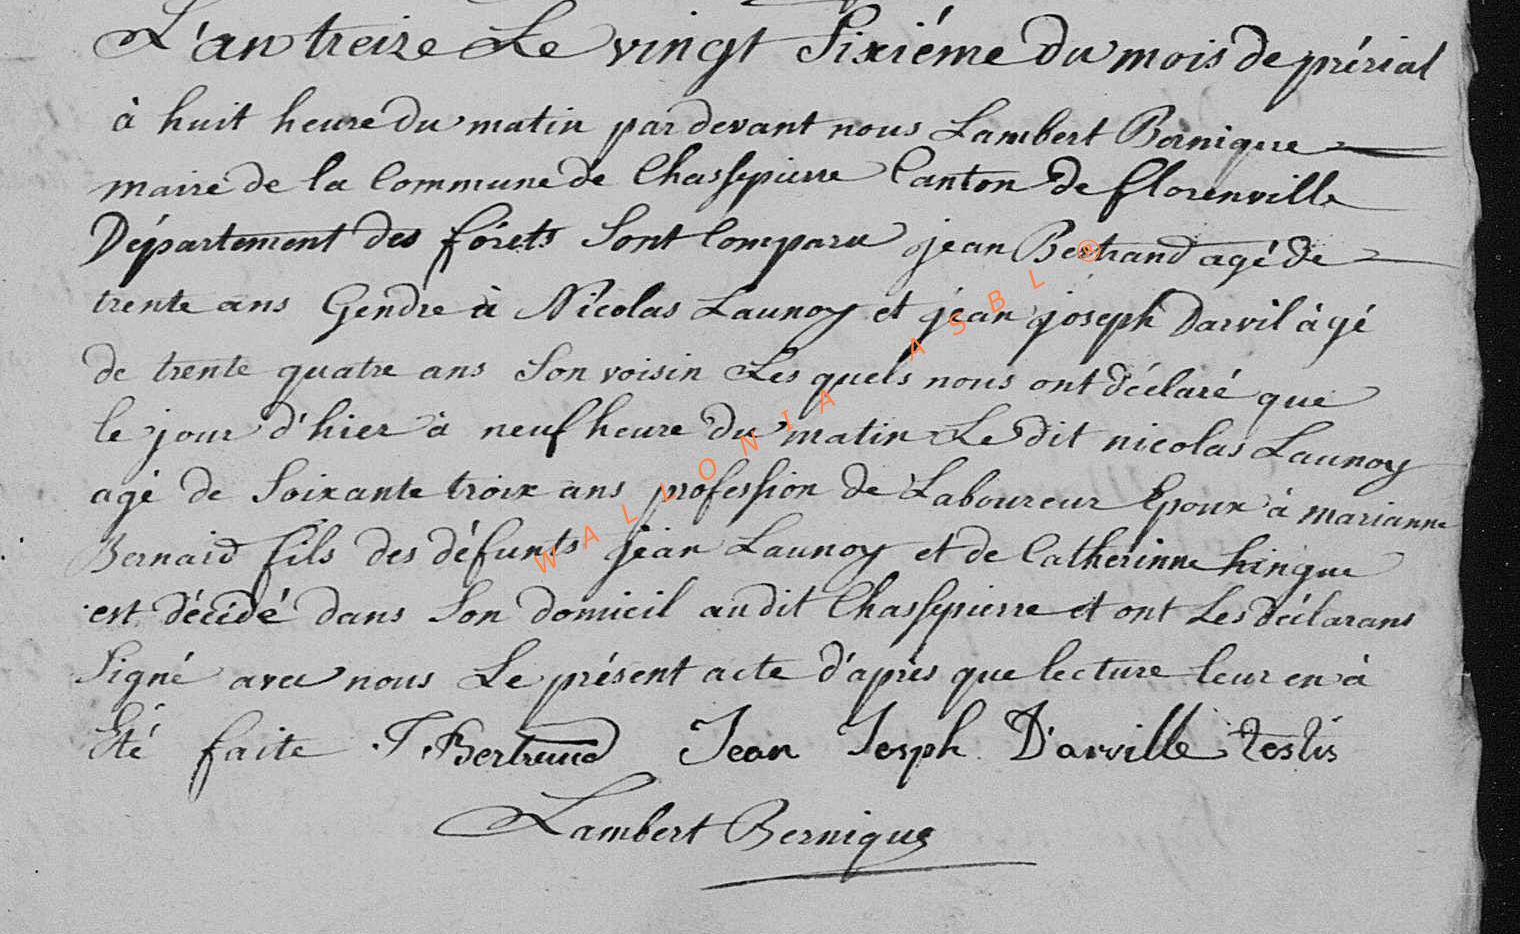 L'an treize Le vingt Sixiéme du mois de prérial
à huit heure du matin par devant nous Lambert Bernique
maire de la Commune de Chassepierre Canton de florenville
Département des fórets Sont Comparu jean Bertrand agé de
trente ans Gendre à Nicolas Launoy et jean joseph Darvil àgé
de trente quatre ans Son voisin Les quels nous ont déclaré que
le jour d'hier à neuf heure du matin Le dit nicolas Launoy
agé de Soixante troix ans profession de Laboureur Epoux à marianne
Bernard fils des défunts jean Launoy et de Catherinne hingue
est décidé dans Son domicil audit Chassepierre et ont Les déclarans
Signé avec nous Le présent acte d'après que lecture leur en à
Eté faite J. Bertrand Jean Joseph D'arville testis
Lambert Bernique
WALLONIA ASBL ®